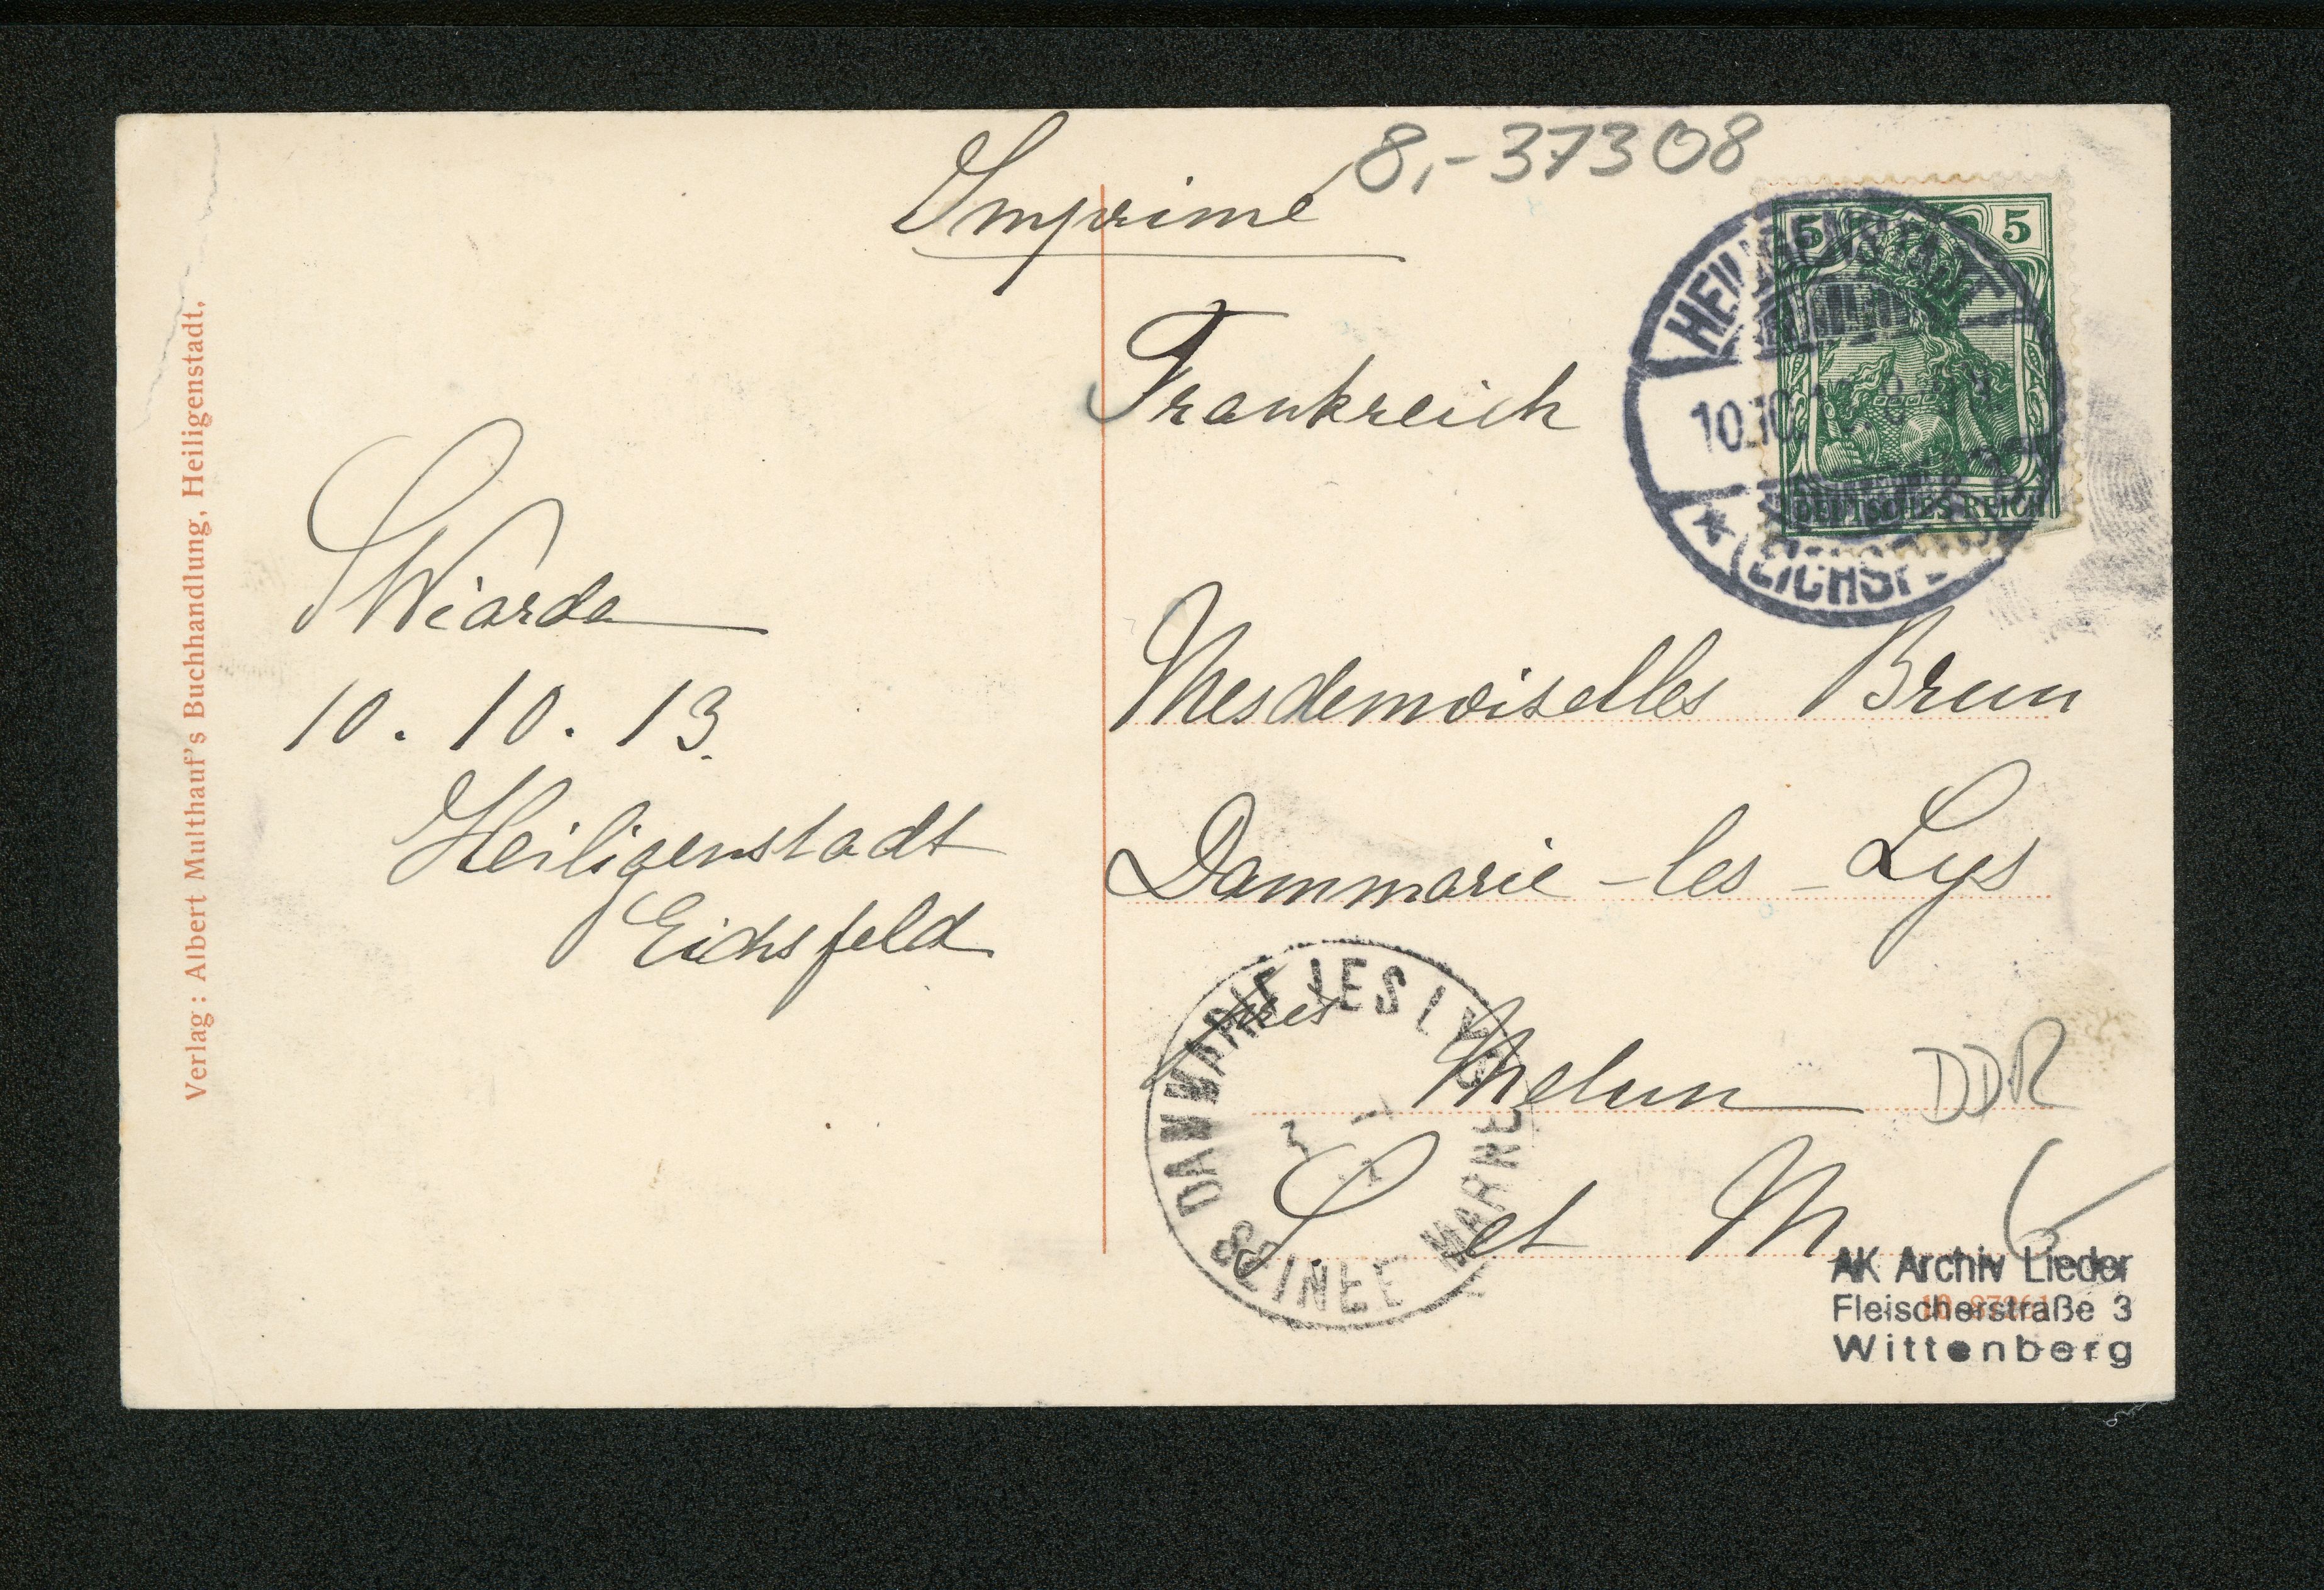 Imprimé
8,- 37308
5 5
DEUTSCHES REICH
HEILIGENSTADT
10.10.
* (EICHSF
Frankreich
Verlag: Albert Multhauf's Buchhandlung, Heiligenstadt,
Wiarda
10. 10. 13.
Heiligenstadt
Eichsfeld
Mesdemoiselles Brun
Dammarie-les-Lys
DAMMARIE LES LYS
SEINE E MARNE
Melun
DDR
S. et M
6
AK Archiv Lieder
Fleischerstraße 3
Wittenberg